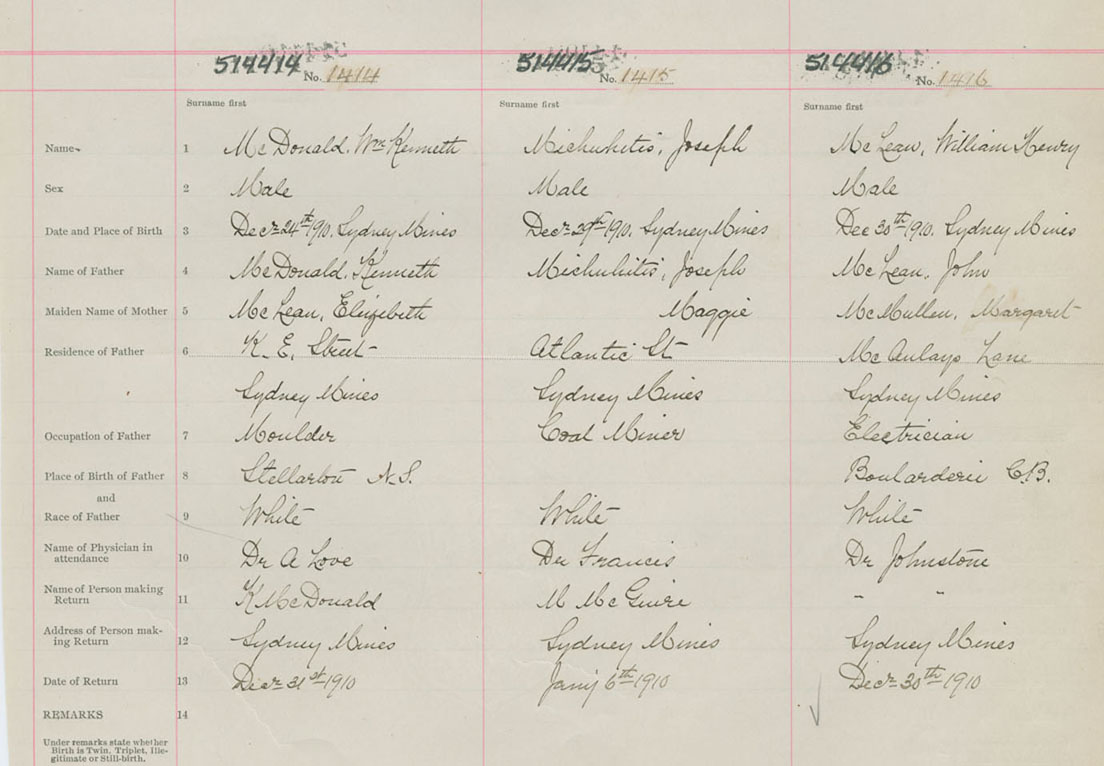 514414 No. 1414 514415 No. 1415 514416 No. 1416
Surname first Surname first Surname first
Name 1 McDonald, Wm Kenneth Michuhitis, Joseph McLean, William Henry
Sex 2 Male Male Male
Date and Place of Birth 3 Decr 24th 1910, Sydney Mines Decr 29th 1910, Sydney Mines Dec 30th 1910, Sydney Mines
Name of Father 4 McDonald, Kenneth Michuhitis, Joseph McLean, John
Maiden Name of Mother 5 McLean, Elizebeth Maggie McMullen, Margaret
Residence of Father 6 K. E. Street Atlantic St McAulays Lane
Sydney Mines Sydney Mines Sydney Mines
Occupation of Father 7 Moulder Coal Miner Electrician
Place of Birth of Father 8 Stellarton N.S. Boularderie C.B.
and
Race of Father 9 White White White
Name of Physician in
attendance 10 Dr A Love Dr Francis Dr Johnstone
Name of Person making
Return 11 K McDonald M McGuire " "
Address of Person mak-
ing Return 12 Sydney Mines Sydney Mines Sydney Mines
Date of Return 13 Decr 31st 1910 Jany 6th 1910 Decr 30th 1910
REMARKS 14
Under remarks state whether
Birth is Twin, Triplet, Ille-
gitimate or Still-birth.